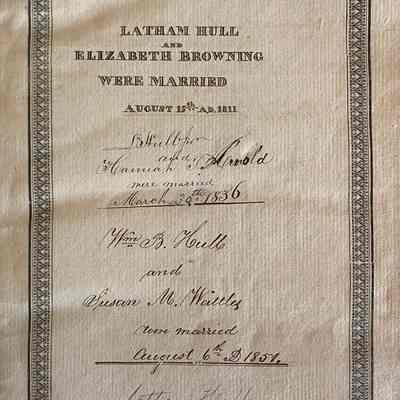 LATHAM HULL
AND
ELIZABETH BROWNING
WERE MARRIED
AUGUST 15th AD, 1811
and
Hannah Arnold
were married
March 1836
Wm B. Hull
and
Susan M. Wattles
were married
August 6th D 1851.